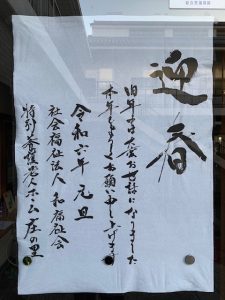 迎春
旧年中は大変お世話になりました
本年もよろしくお願い申し上げます
令和六年 元旦
社会福祉法人 和福祉会
特別養護老人ホーム庄の里